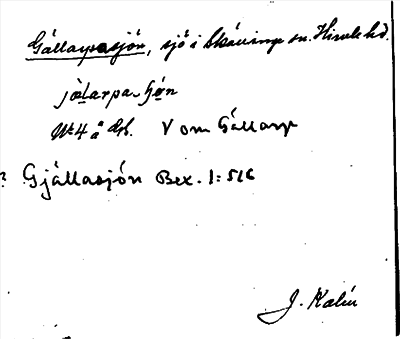 Gällarpasjön, sjö i Skåving sn. Himle hd.
jälarpa-sjön
Nr 4 å drk. V om Gällarp
? Gjällasjön Bex. 1:516
J. Kalén